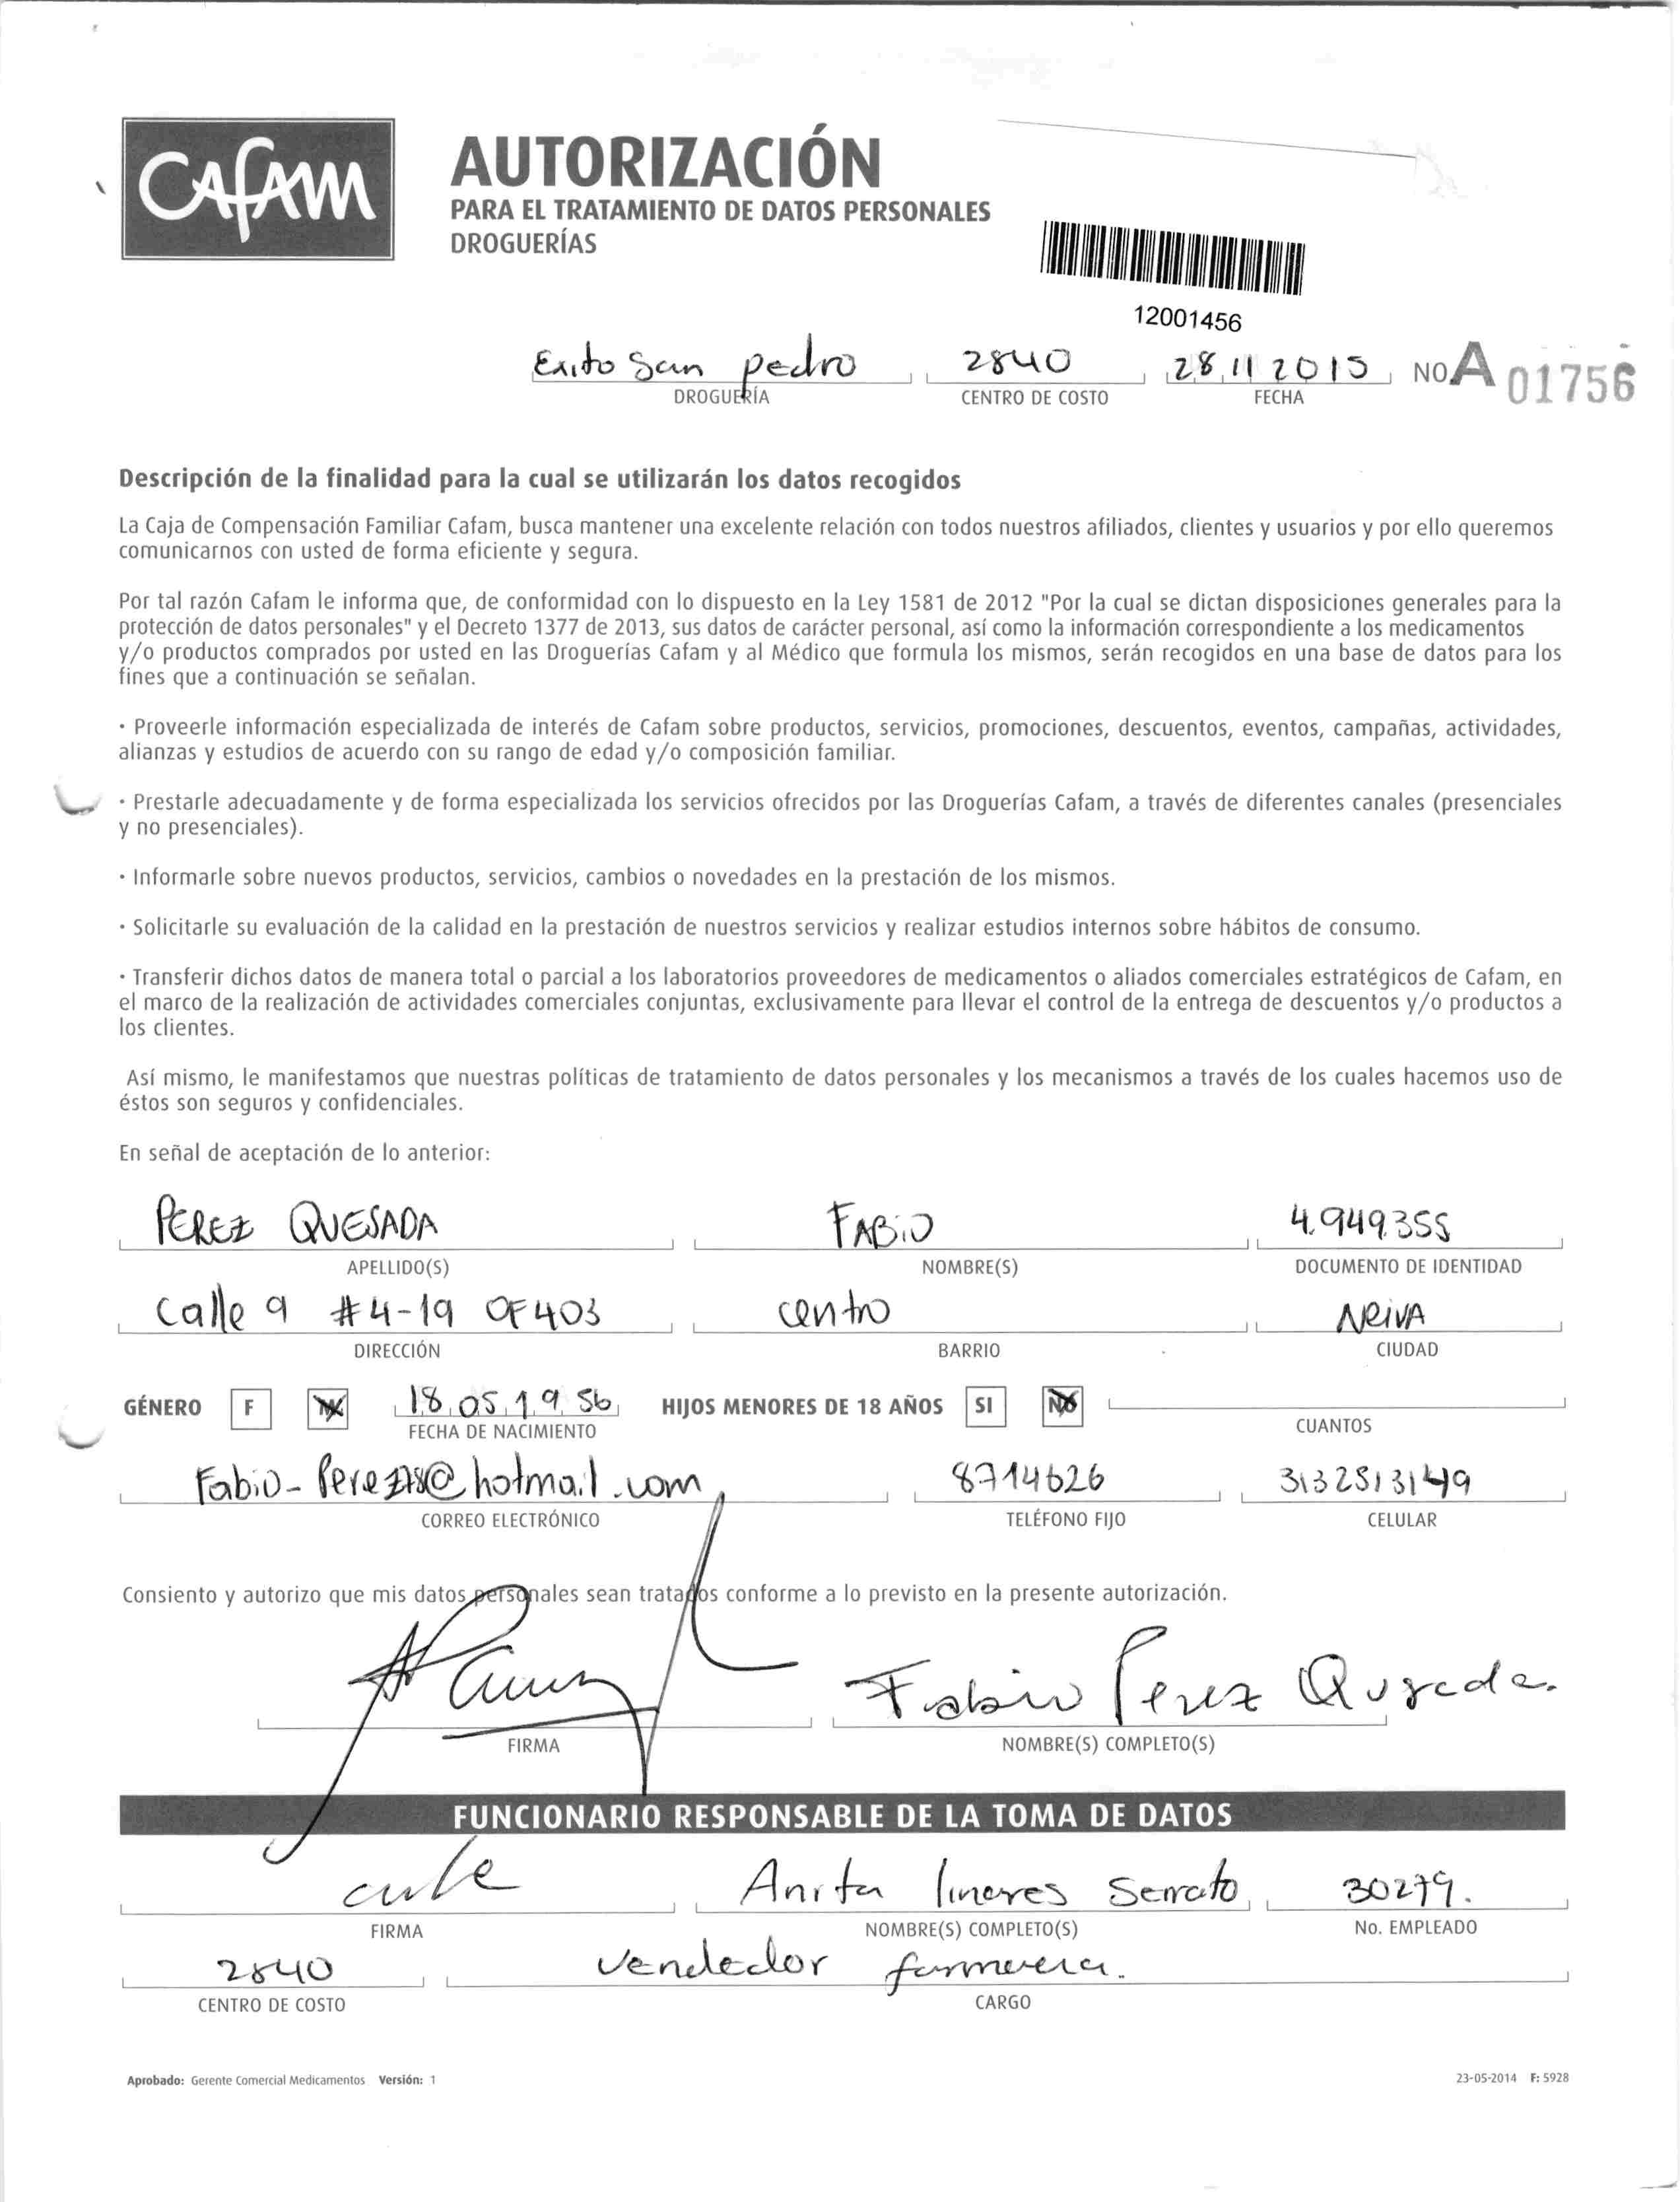 CAFAM
AUTORIZACIÓN
PARA EL TRATAMIENTO DE DATOS PERSONALES
DROGUERÍAS
12001456
Exito San pedro 2840 28 11 2015 NO A 01756
DROGUERÍA CENTRO DE COSTO FECHA
Descripción de la finalidad para la cual se utilizarán los datos recogidos
La Caja de Compensación Familiar Cafam, busca mantener una excelente relación con todos nuestros afiliados, clientes y usuarios y por ello queremos
comunicarnos con usted de forma eficiente y segura.
Por tal razón Cafam le informa que, de conformidad con lo dispuesto en la Ley 1581 de 2012 "Por la cual se dictan disposiciones generales para la
protección de datos personales" y el Decreto 1377 de 2013, sus datos de carácter personal, así como la información correspondiente a los medicamentos
y/o productos comprados por usted en las Droguerías Cafam y al Médico que formula los mismos, serán recogidos en una base de datos para los
fines que a continuación se señalan.
· Proveerle información especializada de interés de Cafam sobre productos, servicios, promociones, descuentos, eventos, campañas, actividades,
alianzas y estudios de acuerdo con su rango de edad y/o composición familiar.
· Prestarle adecuadamente y de forma especializada los servicios ofrecidos por las Droguerías Cafam, a través de diferentes canales (presenciales
y no presenciales).
· Informarle sobre nuevos productos, servicios, cambios o novedades en la prestación de los mismos.
· Solicitarle su evaluación de la calidad en la prestación de nuestros servicios y realizar estudios internos sobre hábitos de consumo.
· Transferir dichos datos de manera total o parcial a los laboratorios proveedores de medicamentos o aliados comerciales estratégicos de Cafam, en
el marco de la realización de actividades comerciales conjuntas, exclusivamente para llevar el control de la entrega de descuentos y/o productos a
los clientes.
Así mismo, le manifestamos que nuestras políticas de tratamiento de datos personales y los mecanismos a través de los cuales hacemos uso de
éstos son seguros y confidenciales.
En señal de aceptación de lo anterior:
PEREZ QUESADA FABIO 4.949.355
APELLIDO(S) NOMBRE(S) DOCUMENTO DE IDENTIDAD
Calle 9 #4-19 OF 403 centro NEIVA
DIRECCIÓN BARRIO CIUDAD
GÉNERO F M 18 05 1956 HIJOS MENORES DE 18 AÑOS SI NO
FECHA DE NACIMIENTO CUANTOS
8714626 3132513149
CORREO ELECTRÓNICO TELÉFONO FIJO CELULAR
Consiento y autorizo que mis datos personales sean tratados conforme a lo previsto en la presente autorización.
Fabio Perez Quesada.
FIRMA NOMBRE(S) COMPLETO(S)
FUNCIONARIO RESPONSABLE DE LA TOMA DE DATOS
Anita linares Serrato 30279.
FIRMA NOMBRE(S) COMPLETO(S) No. EMPLEADO
2840 vendedor
CENTRO DE COSTO CARGO
Aprobado: Gerente Comercial Medicamentos Versión: 1 23-05-2014 F: 5928